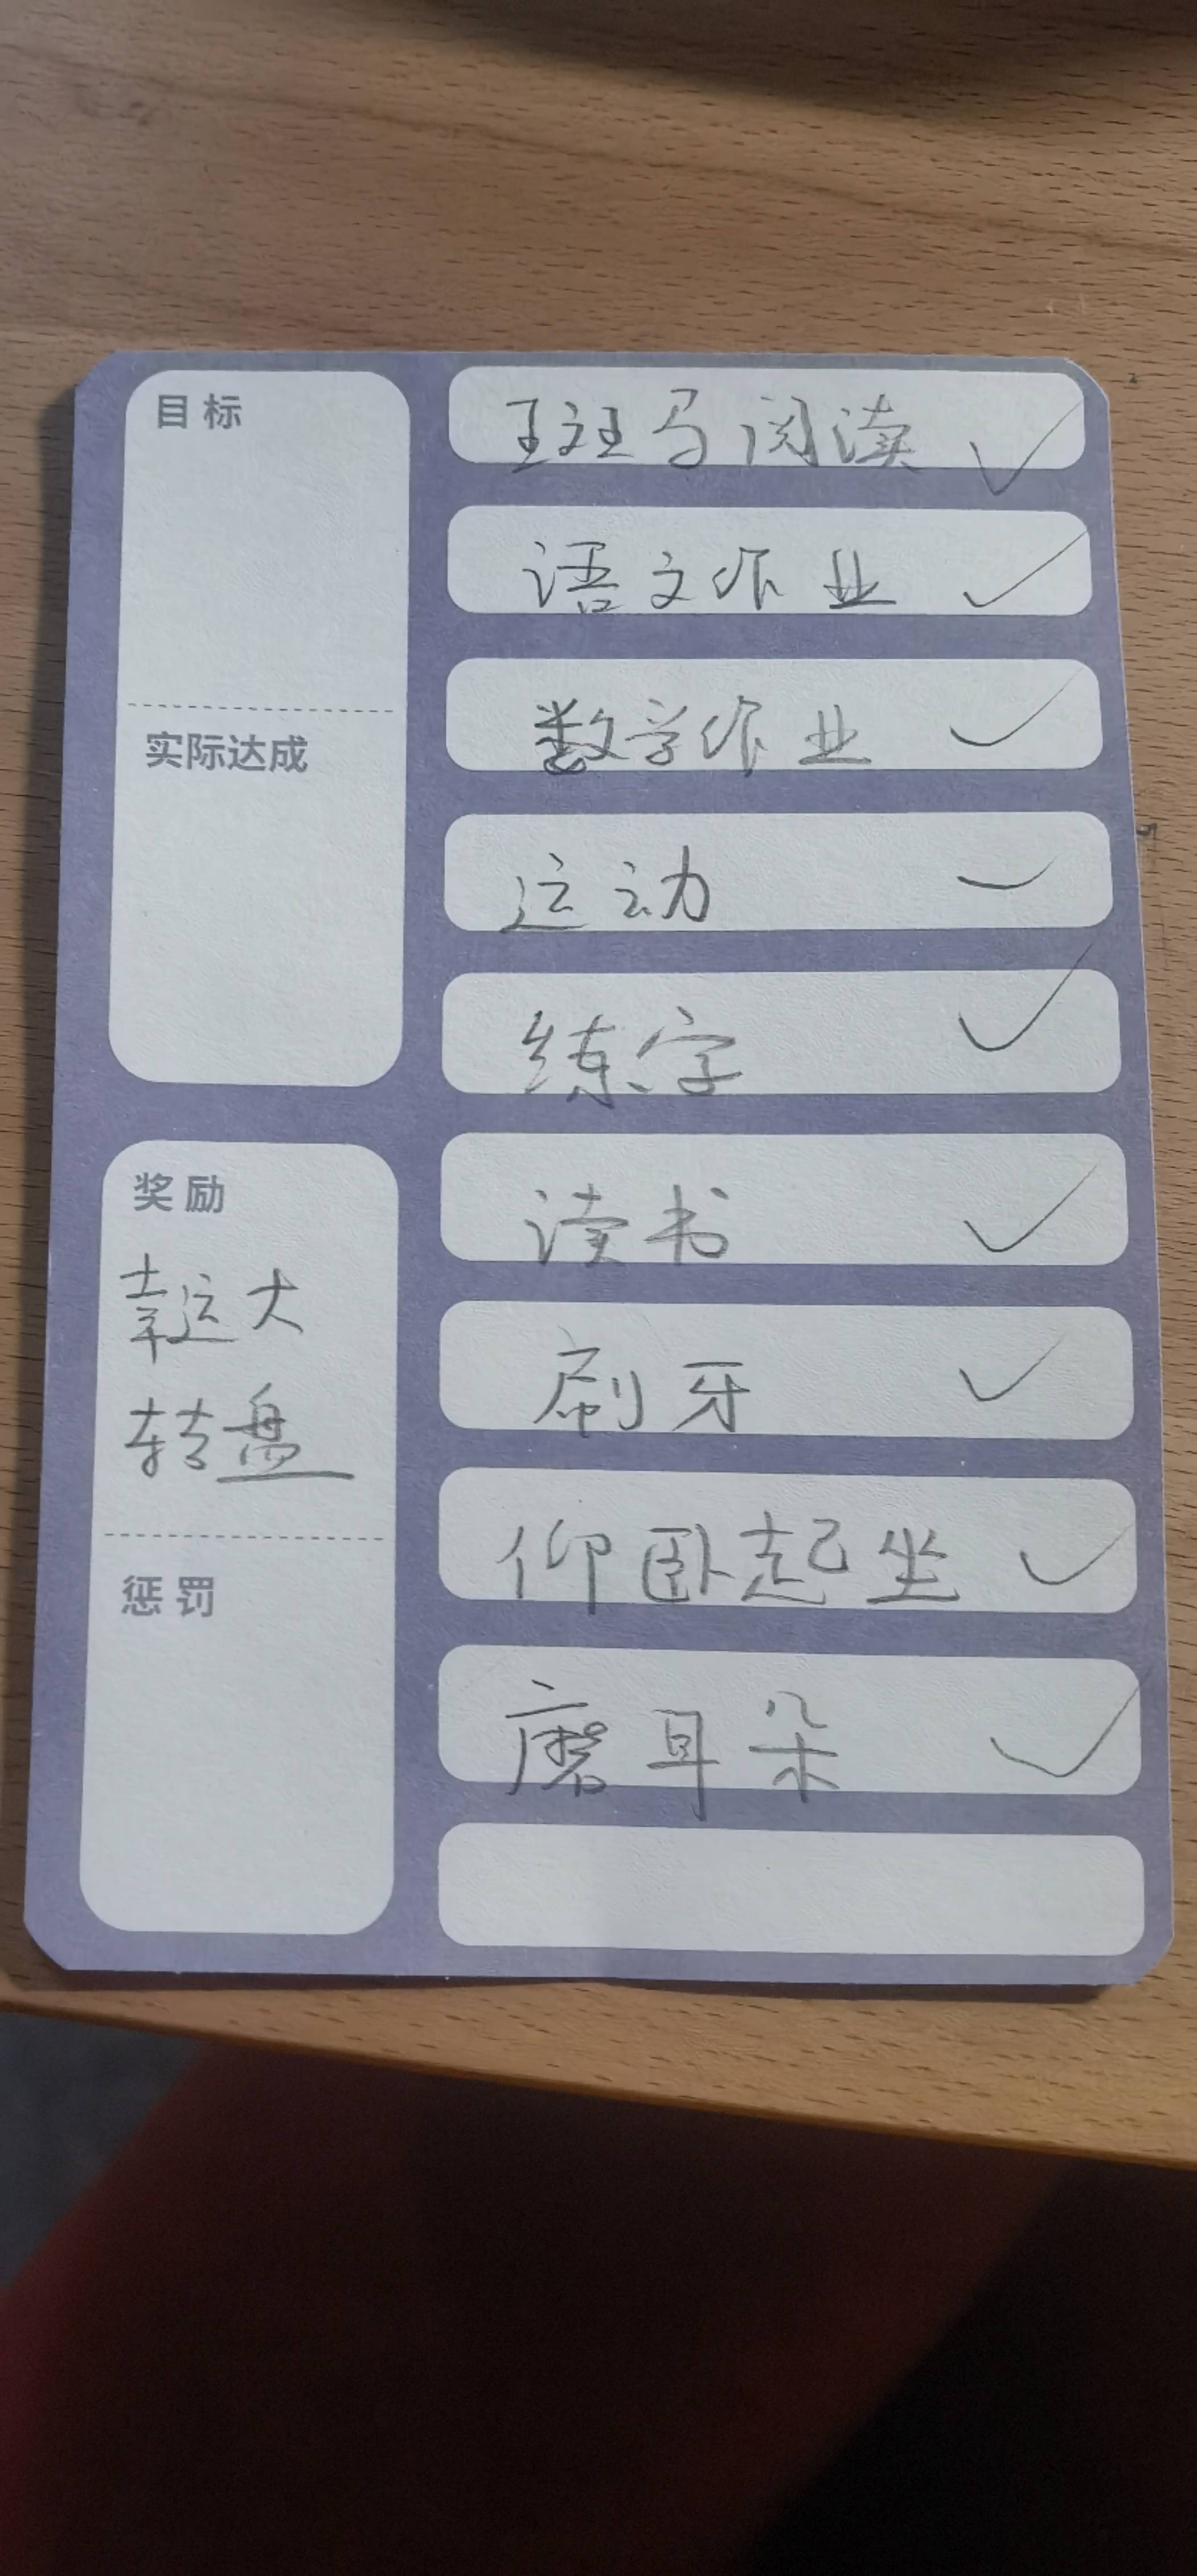 目标
实际达成
奖励
幸运大
转盘
惩罚
斑马阅读 ✓
语文作业 ✓
数学作业 ✓
运动 ✓
练字 ✓
读书 ✓
刷牙 ✓
仰卧起坐 ✓
磨耳朵 ✓